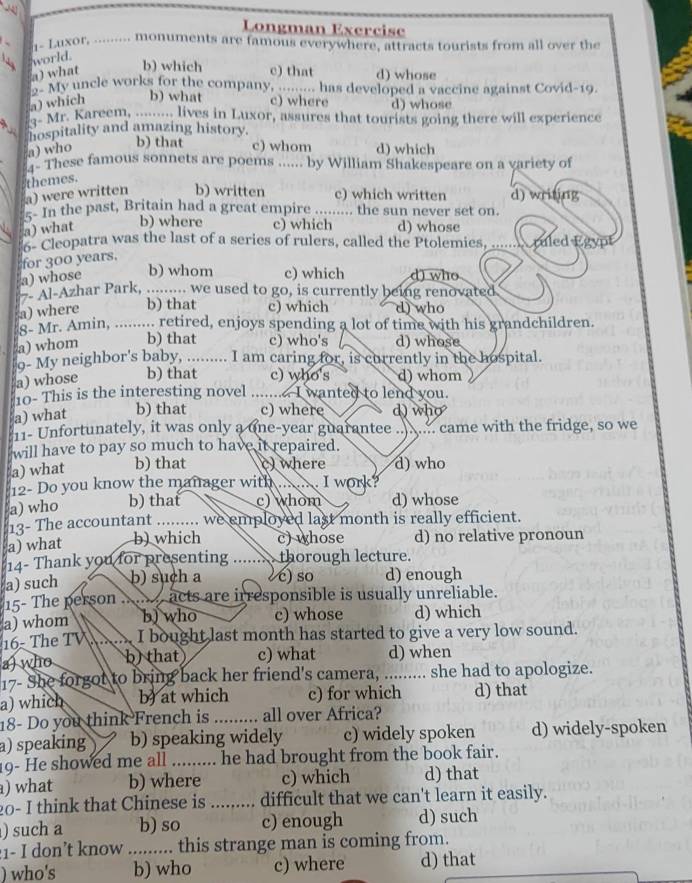 Longman Exercise
1- Luxor, ......... monuments are famous everywhere, attracts tourists from all over the
world.
a) what b) which c) that d) whose
2- My uncle works for the company, ......... has developed a vaccine against Covid-19.
a) which b) what c) where d) whose
3- Mr. Kareem, ......... lives in Luxor, assures that tourists going there will experience
hospitality and amazing history.
a) who b) that c) whom d) which
4- These famous sonnets are poems ...... by William Shakespeare on a variety of
themes.
a) were written b) written c) which written d) writing
5- In the past, Britain had a great empire ......... the sun never set on.
a) what b) where c) which d) whose
6- Cleopatra was the last of a series of rulers, called the Ptolemies, ......... ruled Egypt
for 300 years.
a) whose b) whom c) which d) who
7- Al-Azhar Park, ......... we used to go, is currently being renovated.
a) where b) that c) which d) who
8- Mr. Amin, ......... retired, enjoys spending a lot of time with his grandchildren.
a) whom b) that c) who's d) whose
9- My neighbor's baby, ......... I am caring for, is currently in the hospital.
a) whose b) that c) who's d) whom
10- This is the interesting novel ......... I wanted to lend you.
a) what b) that c) where d) who
11- Unfortunately, it was only a one-year guarantee ......... came with the fridge, so we
will have to pay so much to have it repaired.
a) what b) that c) where d) who
12- Do you know the manager with ......... I work?
a) who b) that c) whom d) whose
13- The accountant ......... we employed last month is really efficient.
a) what b) which c) whose d) no relative pronoun
14- Thank you for presenting ......... thorough lecture.
a) such b) such a c) so d) enough
15- The person ......... acts are irresponsible is usually unreliable.
a) whom b) who c) whose d) which
16- The TV ......... I bought last month has started to give a very low sound.
a) who b) that c) what d) when
17- She forgot to bring back her friend's camera, ......... she had to apologize.
a) which b) at which c) for which d) that
18- Do you think French is ......... all over Africa?
a) speaking b) speaking widely c) widely spoken d) widely-spoken
19- He showed me all ......... he had brought from the book fair.
a) what b) where c) which d) that
20- I think that Chinese is ......... difficult that we can't learn it easily.
) such a b) so c) enough d) such
21- I don't know ......... this strange man is coming from.
) who's b) who c) where d) that